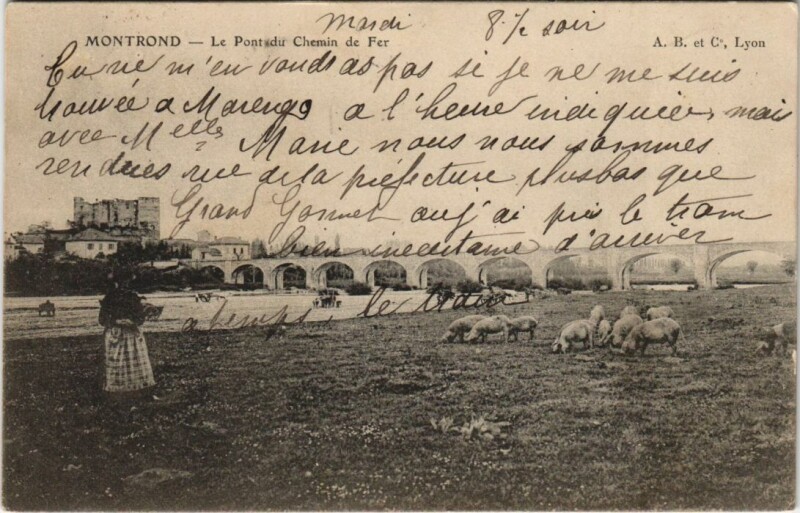 Mardi 8 ½ soir
MONTROND — Le Pont du Chemin de Fer
A. B. et Cie, Lyon
Tu ne m'en voudras pas si je ne me suis
trouvée a Marengo a l'heure indiquée, mais
avec Melle Marie nous nous sommes
rendues rue de la préfecture plus bas que
Grand Gormet ou j'ai pris le tram
bien incertaine d'arriver
a temps, le train